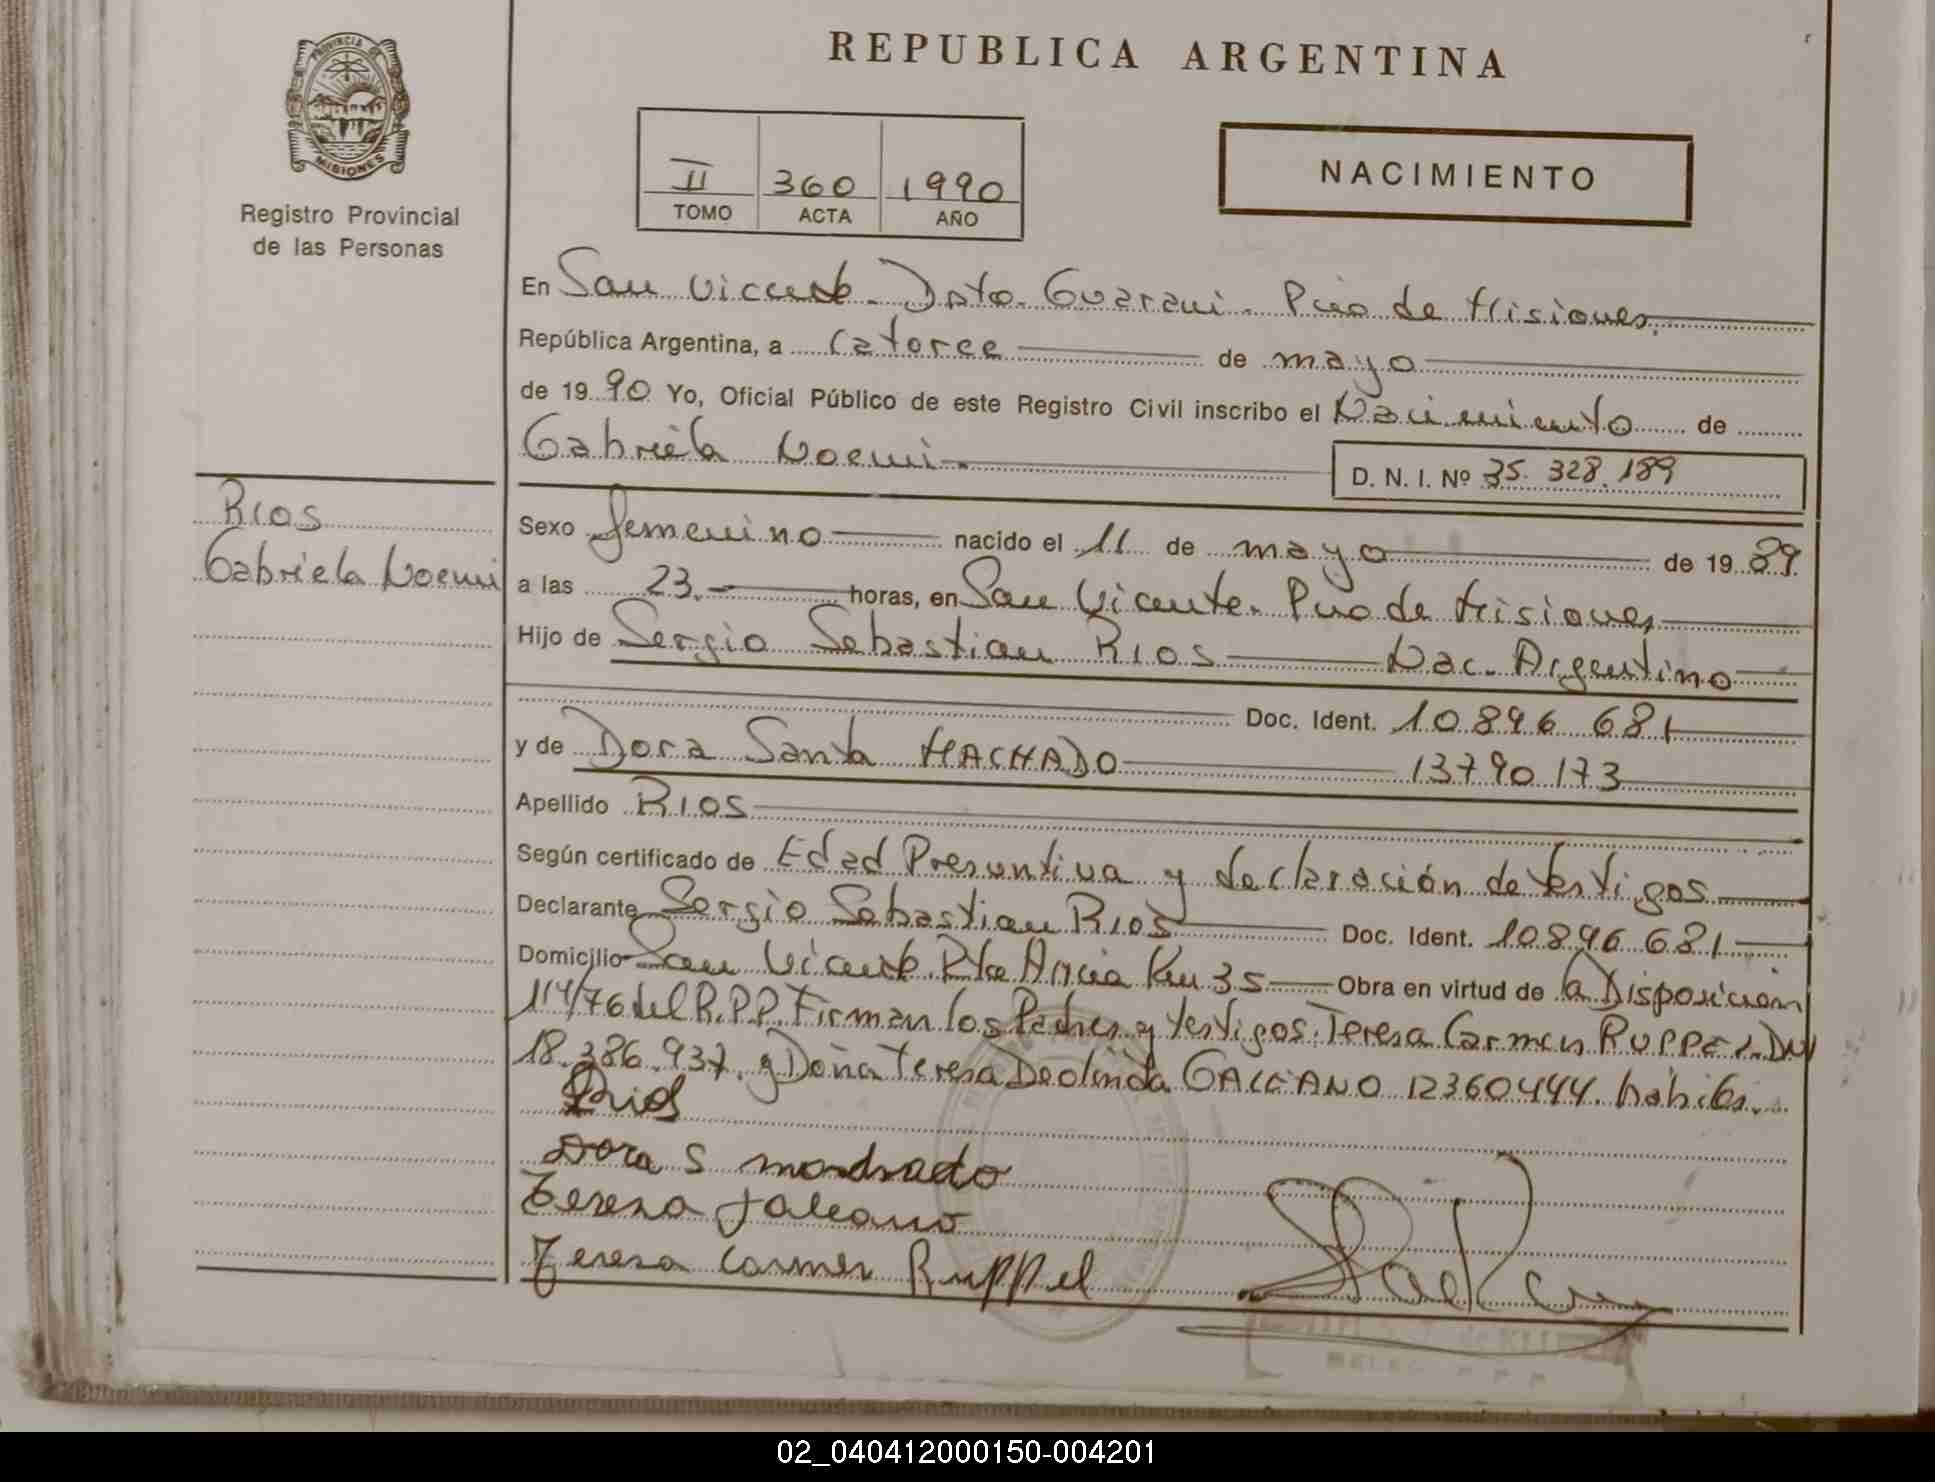 REPUBLICA ARGENTINA
PROVINCIA DE
MISIONES
Registro Provincial
de las Personas
II 360 1990
TOMO ACTA AÑO
NACIMIENTO
En San Vicente. Dpto. Guarani. Pcia de Misiones.
República Argentina, a catorce de mayo
de 1990 Yo, Oficial Público de este Registro Civil inscribo el Nacimiento de
Gabriela Noemi.
D. N. I. Nº 35.328.189
RIOS
Gabriela Noemi
Sexo femenino nacido el 11 de mayo de 1989
a las 23.- horas, en San Vicente. Pcia de Misiones
Hijo de Sergio Sebastian RIOS Nac. Argentino
Doc. Ident. 10.896.681
y de Dora Santa MACHADO 13790173
Apellido RIOS
Según certificado de Edad Presuntiva y declaración de testigos
Declarante Sergio Sebastian RIOS Doc. Ident. 10.896.681
Domicilio San Vicente. Km 35 Obra en virtud de la Disposicion
114/76 del R.P.P. Firman los Padres y testigos: Teresa Carmen RUPPEL DNI
18.386.937. y Doña Teresa Deolinda GALEANO 12360444. hábiles.
Rios
Dora S machado
Teresa Galeano
Teresa Carmen Ruppel
02_040412000150-004201